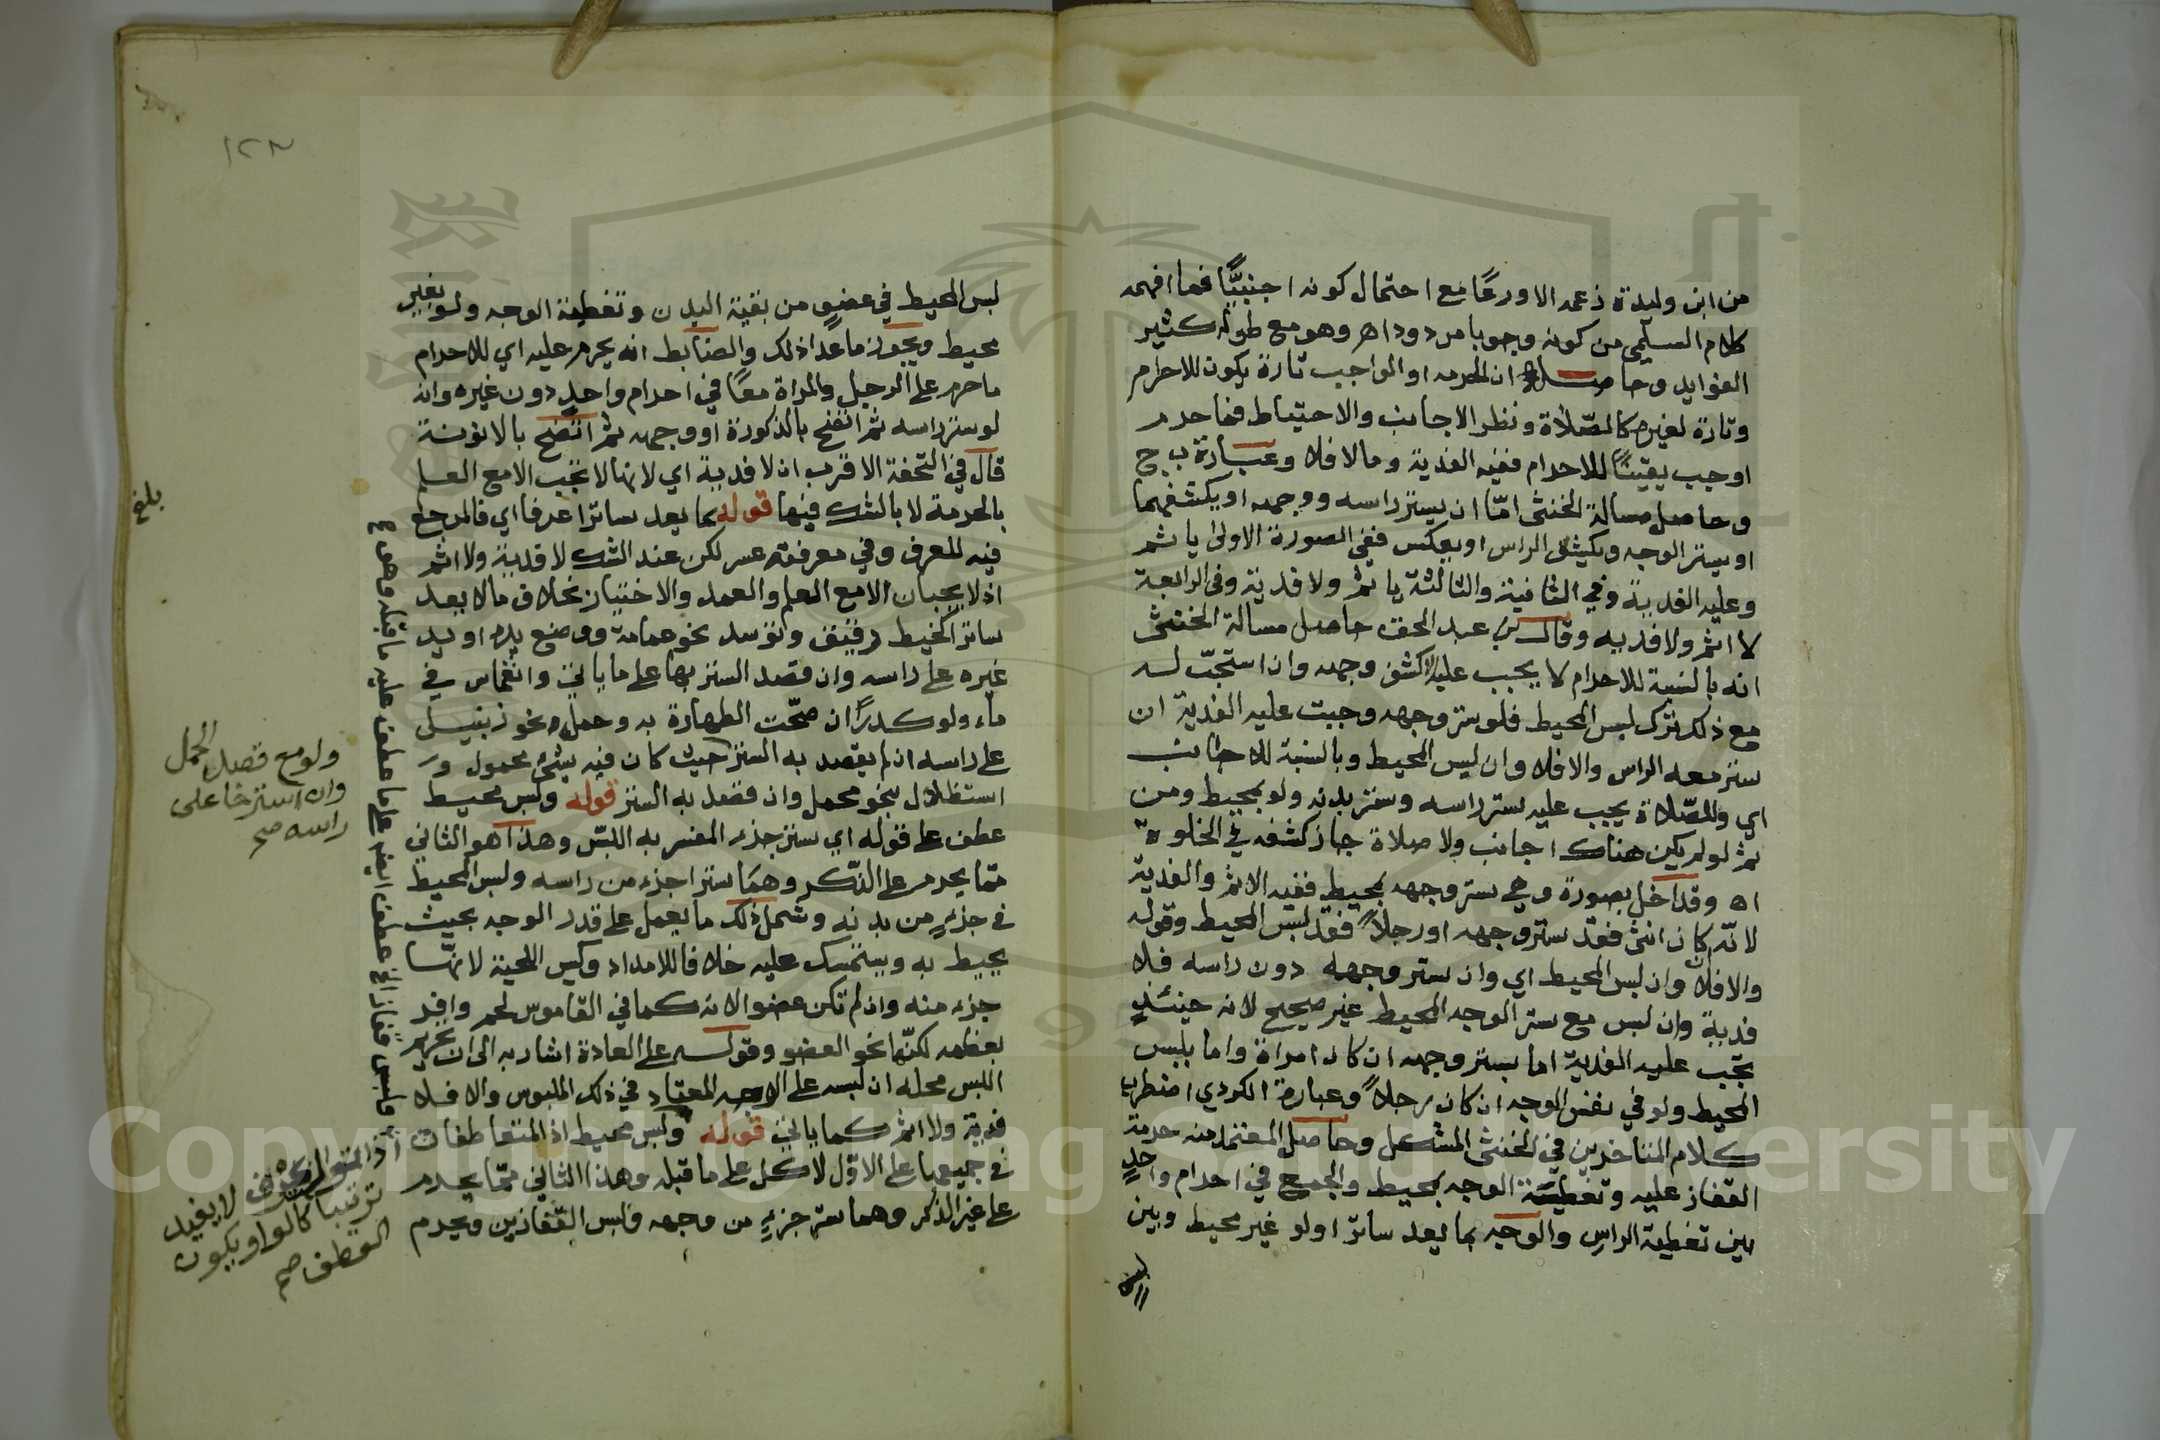 من ابن وليدة زعمه الا ورعًا مع احتمال كونه اجنبيًّا فما افهمه
كلام السبكي من كونه وجوبا مردود اهـ وهو مع طوله كثير
الفوايد وحاصله ان الحرمه او الواجب تارة يكون للاحرام
وتارة لغيره كالصّلاة ونظر الاجانب والاحتياط فما حرم
او وجب يقينًا للاحرام ففيه الفدية وما لا فلا وعبارة ب ج
وحاصل مسالة الخنثى امّا ان يستر راسه ووجهه او يكشفهما
او يستر الوجه ويكشف الراس او بعكس ففي الصورة الاولى ياثم
وعليه الفدية وفي الثانية والثالثة ياثم ولا فدية وفي الرابعة
لا اثم ولا فديه وقال عبد الحق حاصل مسالة الخنثى
انه بالنسبة للاحرام لا يجب عليه الا كشف وجهه وان استحبّ له
مع ذلك ترك لبس المحيط فلو ستر وجهه وجبت عليه الفدية ان
ستر معه الراس والا فلا وان لبس المحيط وبالنسبة للاجانب
اي والصّلاة يجب عليه ستر راسه وستر بدنه ولو بمحيط ومن
ثم لو لم يكن هناك اجانب ولا صلاة جاز كشفه في الخلوة
اه وقد اخل بصورة وهي ستر وجهه بمحيط ففيه الاثم والفدية
لانّه كان انثى فقد ستر وجهه او رجلاً فقد لبس المحيط وقوله
والا فلا وان لبس المحيط اي وان ستر وجهه دون راسه فلا
فدية وان لبس مع ستر الوجه المحيط غير صحيح لانه حينئذٍ
تجب عليه الفدية اما بستر وجهه ان كان امراة واما بلبس
المحيط ولو في نفس الوجه ان كان رجلاً وعبارة الكردي اضطرب
كلام المتاخرين في الخنثى المشكل وحاصل المعتمد منه حرمة
القفاز عليه وتغطية الوجه بمحيط والجمع في احرام واحدٍ
بين تغطية الراس والوجه بما يعد ساترا ولو غير محيط وبين
لبس
١٢٣
لبس المحيط في عضوٍ من بقية البدن وتغطية الوجه ولو بغير
محيط ويجوز ما عدا ذلك والضابط انه يحرم عليه اي للاحرام
ما حرم على الرجل والمراة معًا في احرام واحدٍ دون غيره وانه
لو ستر راسه ثم اتضح بالذكورة او وجهه ثم اتضح بالانوثة
قال في التحفة الاقرب ان لا فدية اي لانها لا تجب الا مع العلم
بالحرمة لا بالشك فيها قوله بما يعد ساترا عرفا اي فالمرجع
فيه للعرف وفي معرفته عسر لكن عند الشك لا فدية ولا اثم
اذ لا يجبان الا مع العلم والعمد والاختيار بخلاف ما لا يعد
ساترا كخيط رقيق وتوسد نحو عمامة ووضع يده او يد
غيره على راسه وان قصد الستر بها على ما ياتي وانغماس في
ماء ولو كدرًا ان صحّت الطهارة به وحمل نحو زنبيل
على راسه ان لم يقصد به الستر حيث كان فيه شئ محمول و
استظلال بنحو محمل وان قصد به الستر قوله ولبس محيط
عطف على قوله اي ستر جزء المفسر به اللبس وهذا هو الثاني
مّما يحرم على الذّكر وهما ستر اجزء من راسه ولبس المحيط
في جزءٍ من بدنه وشمل ذلك ما يعمل على قدر الوجه بحيث
يحيط به ويستمسك عليه خلافا للامداد وكيس اللحية لانهّا
جزء منه وان لم تكن عضوا لانه كما في القاموس لحم وافر
بعظمه لكنّها نحو العضو وقوله على العادة اشار به الى ان تحريم
اللبس محله ان لبسه على الوجه المعتاد في ذلك الملبوس والا فلا
فدية ولا اثم كما ياتي قوله ولبس محيط اذ المتعاطفات
في جميعها على الاوّل لا كل على ما قبله وهذا الثاني ممّا يحرم
على غير الذكر وهما ستر جزءٍ من وجهه ولبس القفازين ويحرم
بلغ
ولو مع قصد الحمل
وان استرخا على
راسه صح
لا يفيد
ترتيبا كالواو يكون
العطف صح